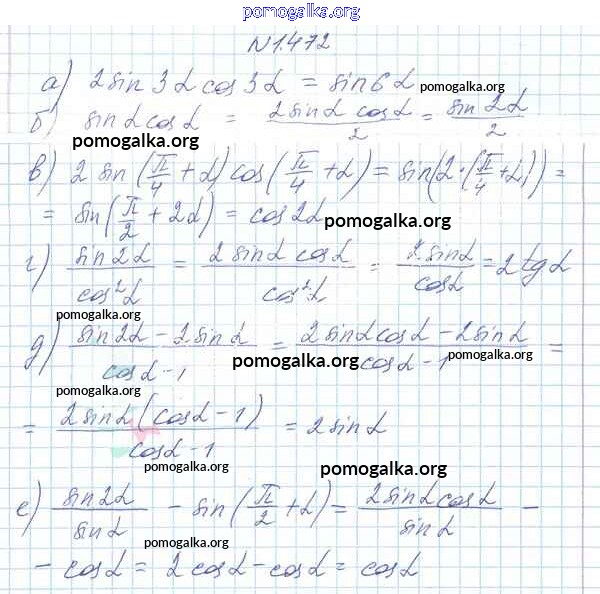 pomogalka.org
№1.472
а) 2 sin 3α cos 3α = sin 6α pomogalka.org
б) sin α cos α = 2 sin α cos α / 2 = sin 2α / 2
pomogalka.org pomogalka.org
в) 2 sin (π/4 + α) cos (π/4 + α) = sin(2·(π/4 + α)) =
= sin(π/2 + 2α) = cos 2α pomogalka.org
г) sin 2α / cos²α = 2 sin α cos α / cos²α = 2 sin α / cos α = 2 tg α
pomogalka.org pomogalka.org
д) sin 2α - 2 sin α / cos α - 1 = 2 sin α cos α - 2 sin α / cos α - 1 =
pomogalka.org pomogalka.org
pomogalka.org
= 2 sin α (cos α - 1) / cos α - 1 = 2 sin α
pomogalka.org pomogalka.org
е) sin 2α / sin α - sin (π/2 + α) = 2 sin α cos α / sin α -
pomogalka.org pomogalka.org
- cos α = 2 cos α - cos α = cos α